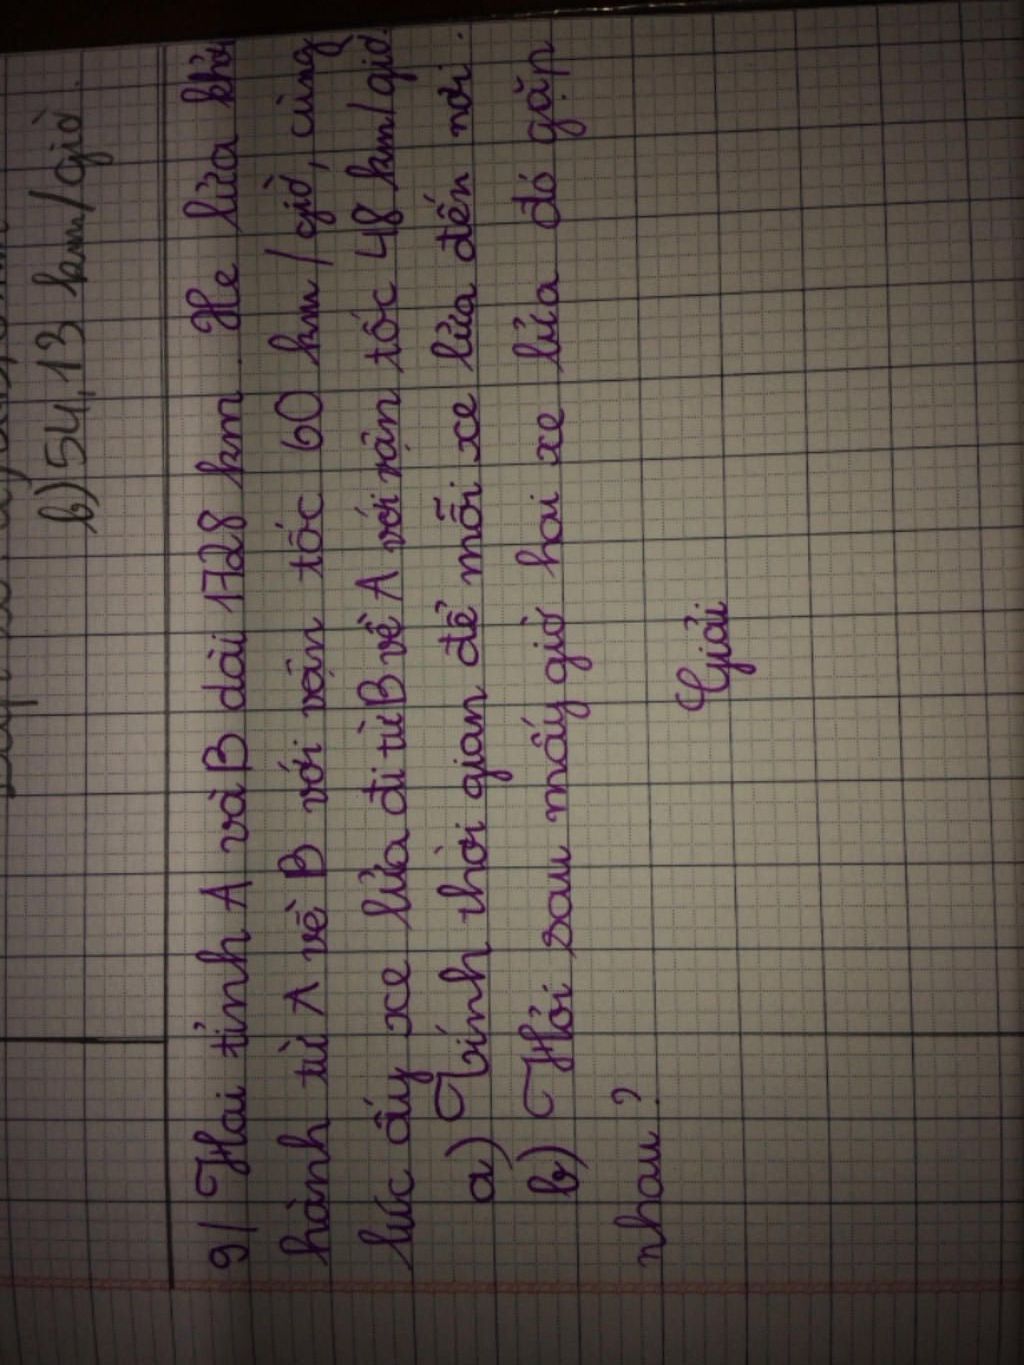 b) 54,13 km/giờ.
9/ Hai tỉnh A và B dài 1728 km. Xe lửa khởi
hành từ A về B với vận tốc 60 km/giờ, cùng
lúc ấy xe lửa đi từ B về A với vận tốc 48 km/giờ.
a) Tính thời gian để mỗi xe lửa đến nơi.
b) Hỏi sau mấy giờ hai xe lửa đó gặp
nhau?
Giải